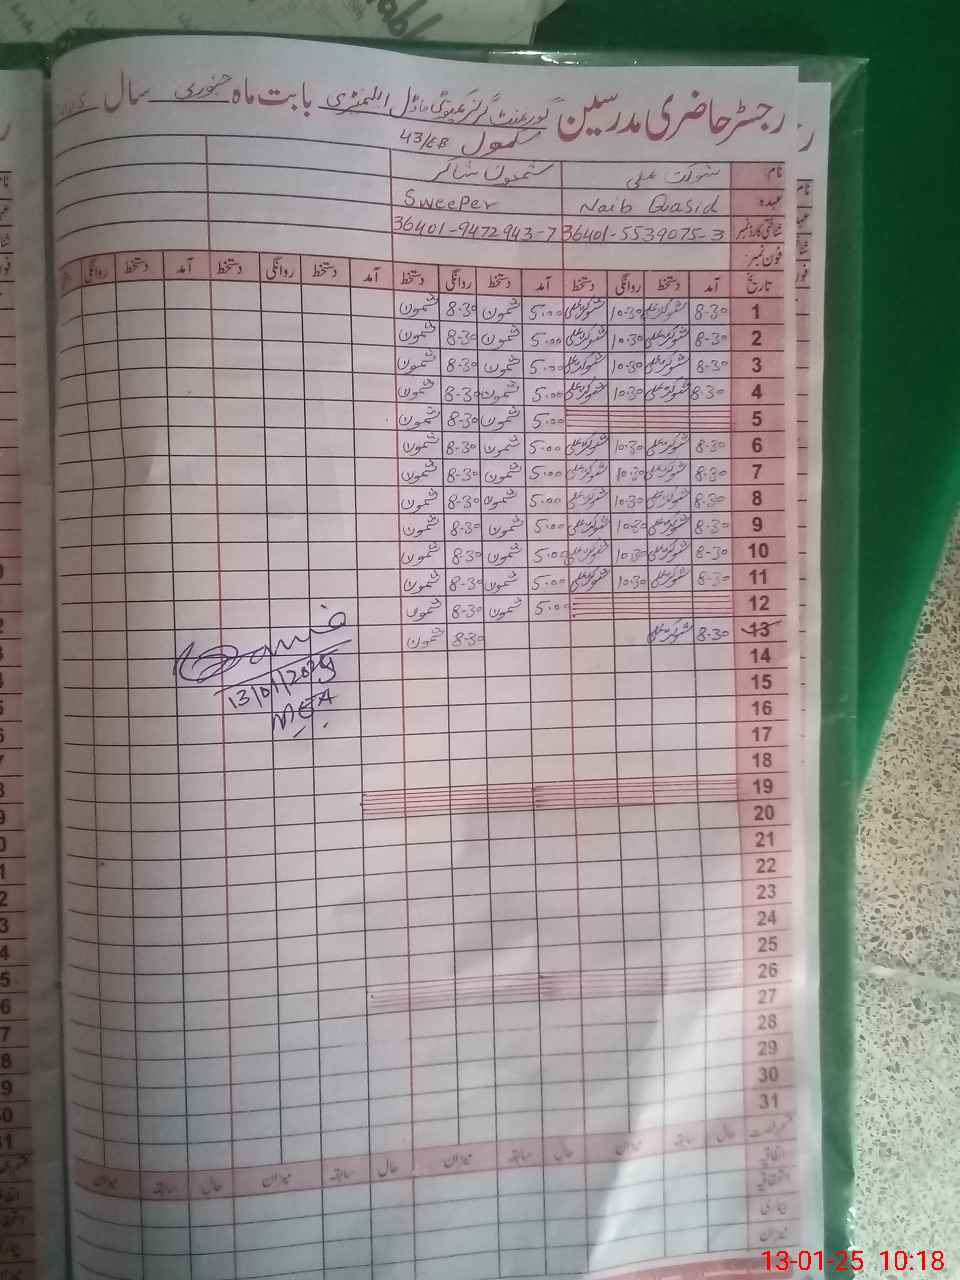 رجسٹر حاضری مدرسین گورنمنٹ گرلز کمیونٹی ماڈل ایلیمنٹری بابت ماہ جنوری سال
سکول 43/EB
نام: شوکت علی شمعون شاکر
عہدہ Naib Qasid Sweeper
شناختی کارڈ نمبر 36401-5539075-3 36401-9472943-7
فون نمبر:
تاریخ آمد دستخط روانگی دستخط آمد دستخط روانگی دستخط آمد دستخط روانگی دستخط آمد دستخط روانگی
1 8-30 شوکت علی 10-30 شوکت علی 5.00 شمعون 8-30 شمعون
2 8-30 شوکت علی 10-30 شوکت علی 5.00 شمعون 8-30 شمعون
3 8-30 شوکت علی 10-30 شوکت علی 5.00 شمعون 8-30 شمعون
4 8-30 شوکت علی 10-30 شوکت علی 5.00 شمعون 8-30 شمعون
5 5.00 شمعون 8-30 شمعون
6 8-30 شوکت علی 10-30 شوکت علی 5.00 شمعون 8-30 شمعون
7 8-30 شوکت علی 10-30 شوکت علی 5.00 شمعون 8-30 شمعون
8 8-30 شوکت علی 10-30 شوکت علی 5.00 شمعون 8-30 شمعون
9 8-30 شوکت علی 10-30 شوکت علی 5.00 شمعون 8-30 شمعون
10 8-30 شوکت علی 10-30 شوکت علی 5.00 شمعون 8-30 شمعون
11 8-30 شوکت علی 10-30 شوکت علی 5.00 شمعون 8-30 شمعون
12 5.00 شمعون 8-30 شمعون
13 8-30 شوکت علی 8-30 شمعون
13/01/2025
MEA
14
15
16
17
18
19
20
21
22
23
24
25
26
27
28
29
30
31
حال سابقہ میزان حال سابقہ میزان حال سابقہ میزان حال سابقہ میزان
اتفاقیہ
استحقاقیہ
بیماری
میزان
13-01-25 10:18